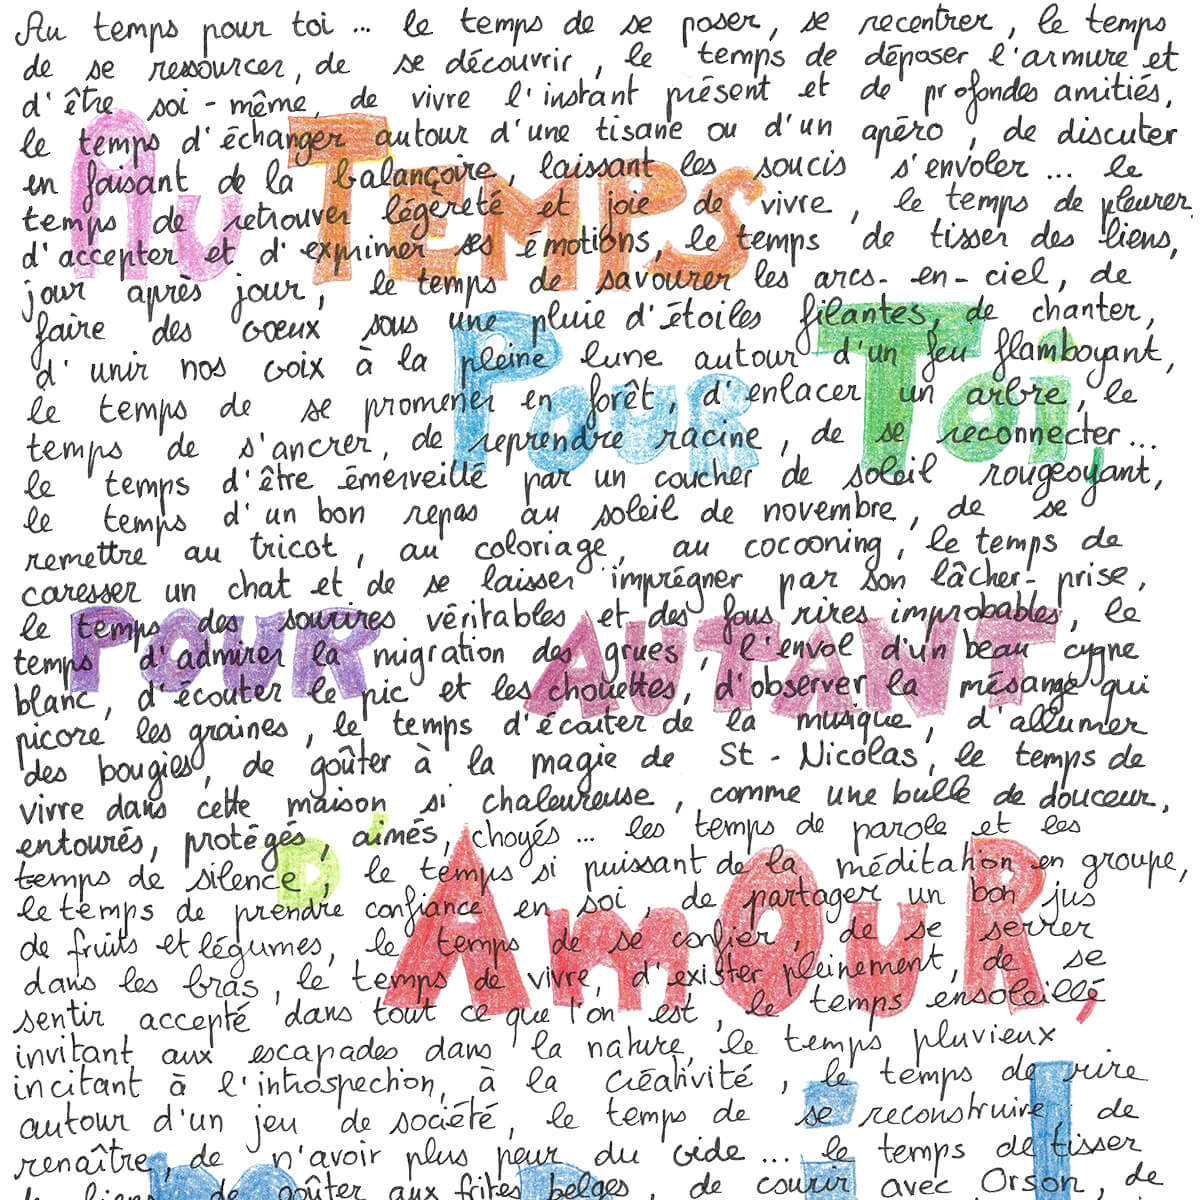 Au temps pour toi ... le temps de se poser, se recentrer, le temps
de se ressourcer, de se découvrir, le temps de déposer l'armure et
d'être soi-même, de vivre l'instant présent et de profondes amitiés,
le temps d'échanger autour d'une tisane ou d'un apéro, de discuter
en faisant de la balançoire, laissant les soucis s'envoler ... le
temps de retrouver légèreté et joie de vivre, le temps de pleurer,
d'accepter et d'exprimer ses émotions, le temps de tisser des liens,
jour après jour, le temps de savourer les arcs-en-ciel, de
faire des vœux sous une pluie d'étoiles filantes, de chanter,
d'unir nos voix à la pleine lune autour d'un feu flamboyant,
le temps de se promener en forêt, d'enlacer un arbre, le
temps de s'ancrer, de reprendre racine, de se reconnecter...
le temps d'être émerveillé par un coucher de soleil rougeoyant,
le temps d'un bon repas au soleil de novembre, de se
remettre au tricot, au coloriage, au cocooning, le temps de
caresser un chat et de se laisser imprégner par son lâcher-prise,
le temps des sourires véritables et des fous rires improbables, le
temps d'admirer la migration des grues, l'envol d'un beau cygne
blanc, d'écouter le pic et les chouettes, d'observer la mésange qui
picore les graines, le temps d'écouter de la musique, d'allumer
des bougies, de goûter à la magie de St-Nicolas, le temps de
vivre dans cette maison si chaleureuse, comme une bulle de douceur,
entourés, protégés, aimés, choyés ... les temps de parole et les
temps de silence, le temps si puissant de la méditation en groupe,
le temps de prendre confiance en soi, de partager un bon jus
de fruits et légumes, le temps de se confier, de se serrer
dans les bras, le temps de vivre, d'exister pleinement, de se
sentir accepté dans tout ce que l'on est, le temps ensoleillé
invitant aux escapades dans la nature, le temps pluvieux
incitant à l'introspection, à la créativité, le temps de rire
autour d'un jeu de société, le temps de se reconstruire, de
renaître, de n'avoir plus peur du vide ... le temps de tisser
le liens, de goûter aux frites belges, de courir avec Orson, de
Au Temps
Pour Toi,
Pour Autant
d'Amour,